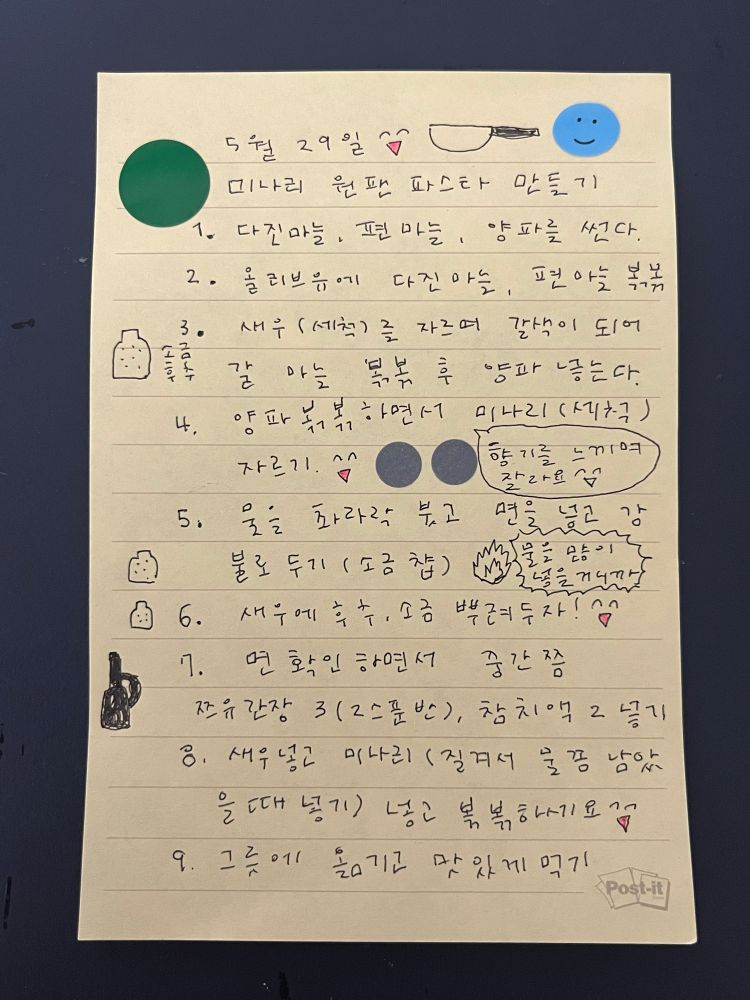 5월 29일 ^^
미나리 원팬 파스타 만들기
1. 다진마늘, 편마늘, 양파를 썬다.
2. 올리브유에 다진마늘, 편마늘 볶볶
3. 새우(세척)를 자르며 갈색이 되어
소금
후추
갈 마늘 볶볶 후 양파 넣는다.
4. 양파 볶볶하면서 미나리(세척)
자르기. ^^
향기를 느끼며
잘라요 ^^
5. 물을 촤라락 붓고 면을 넣고 강
불로 두기 (소금 챱)
물을 많이
넣을거니까!
6. 새우에 후추, 소금 뿌려두자! ^^
7. 면 확인하면서 중간쯤
쯔유간장 3(2스푼반), 참치액 2 넣기
8. 새우넣고 미나리(질겨서 물쫌 남았
을 때 넣기) 넣고 볶볶하기요 ^^
9. 그릇에 옮기고 맛있게 먹기
Post-it